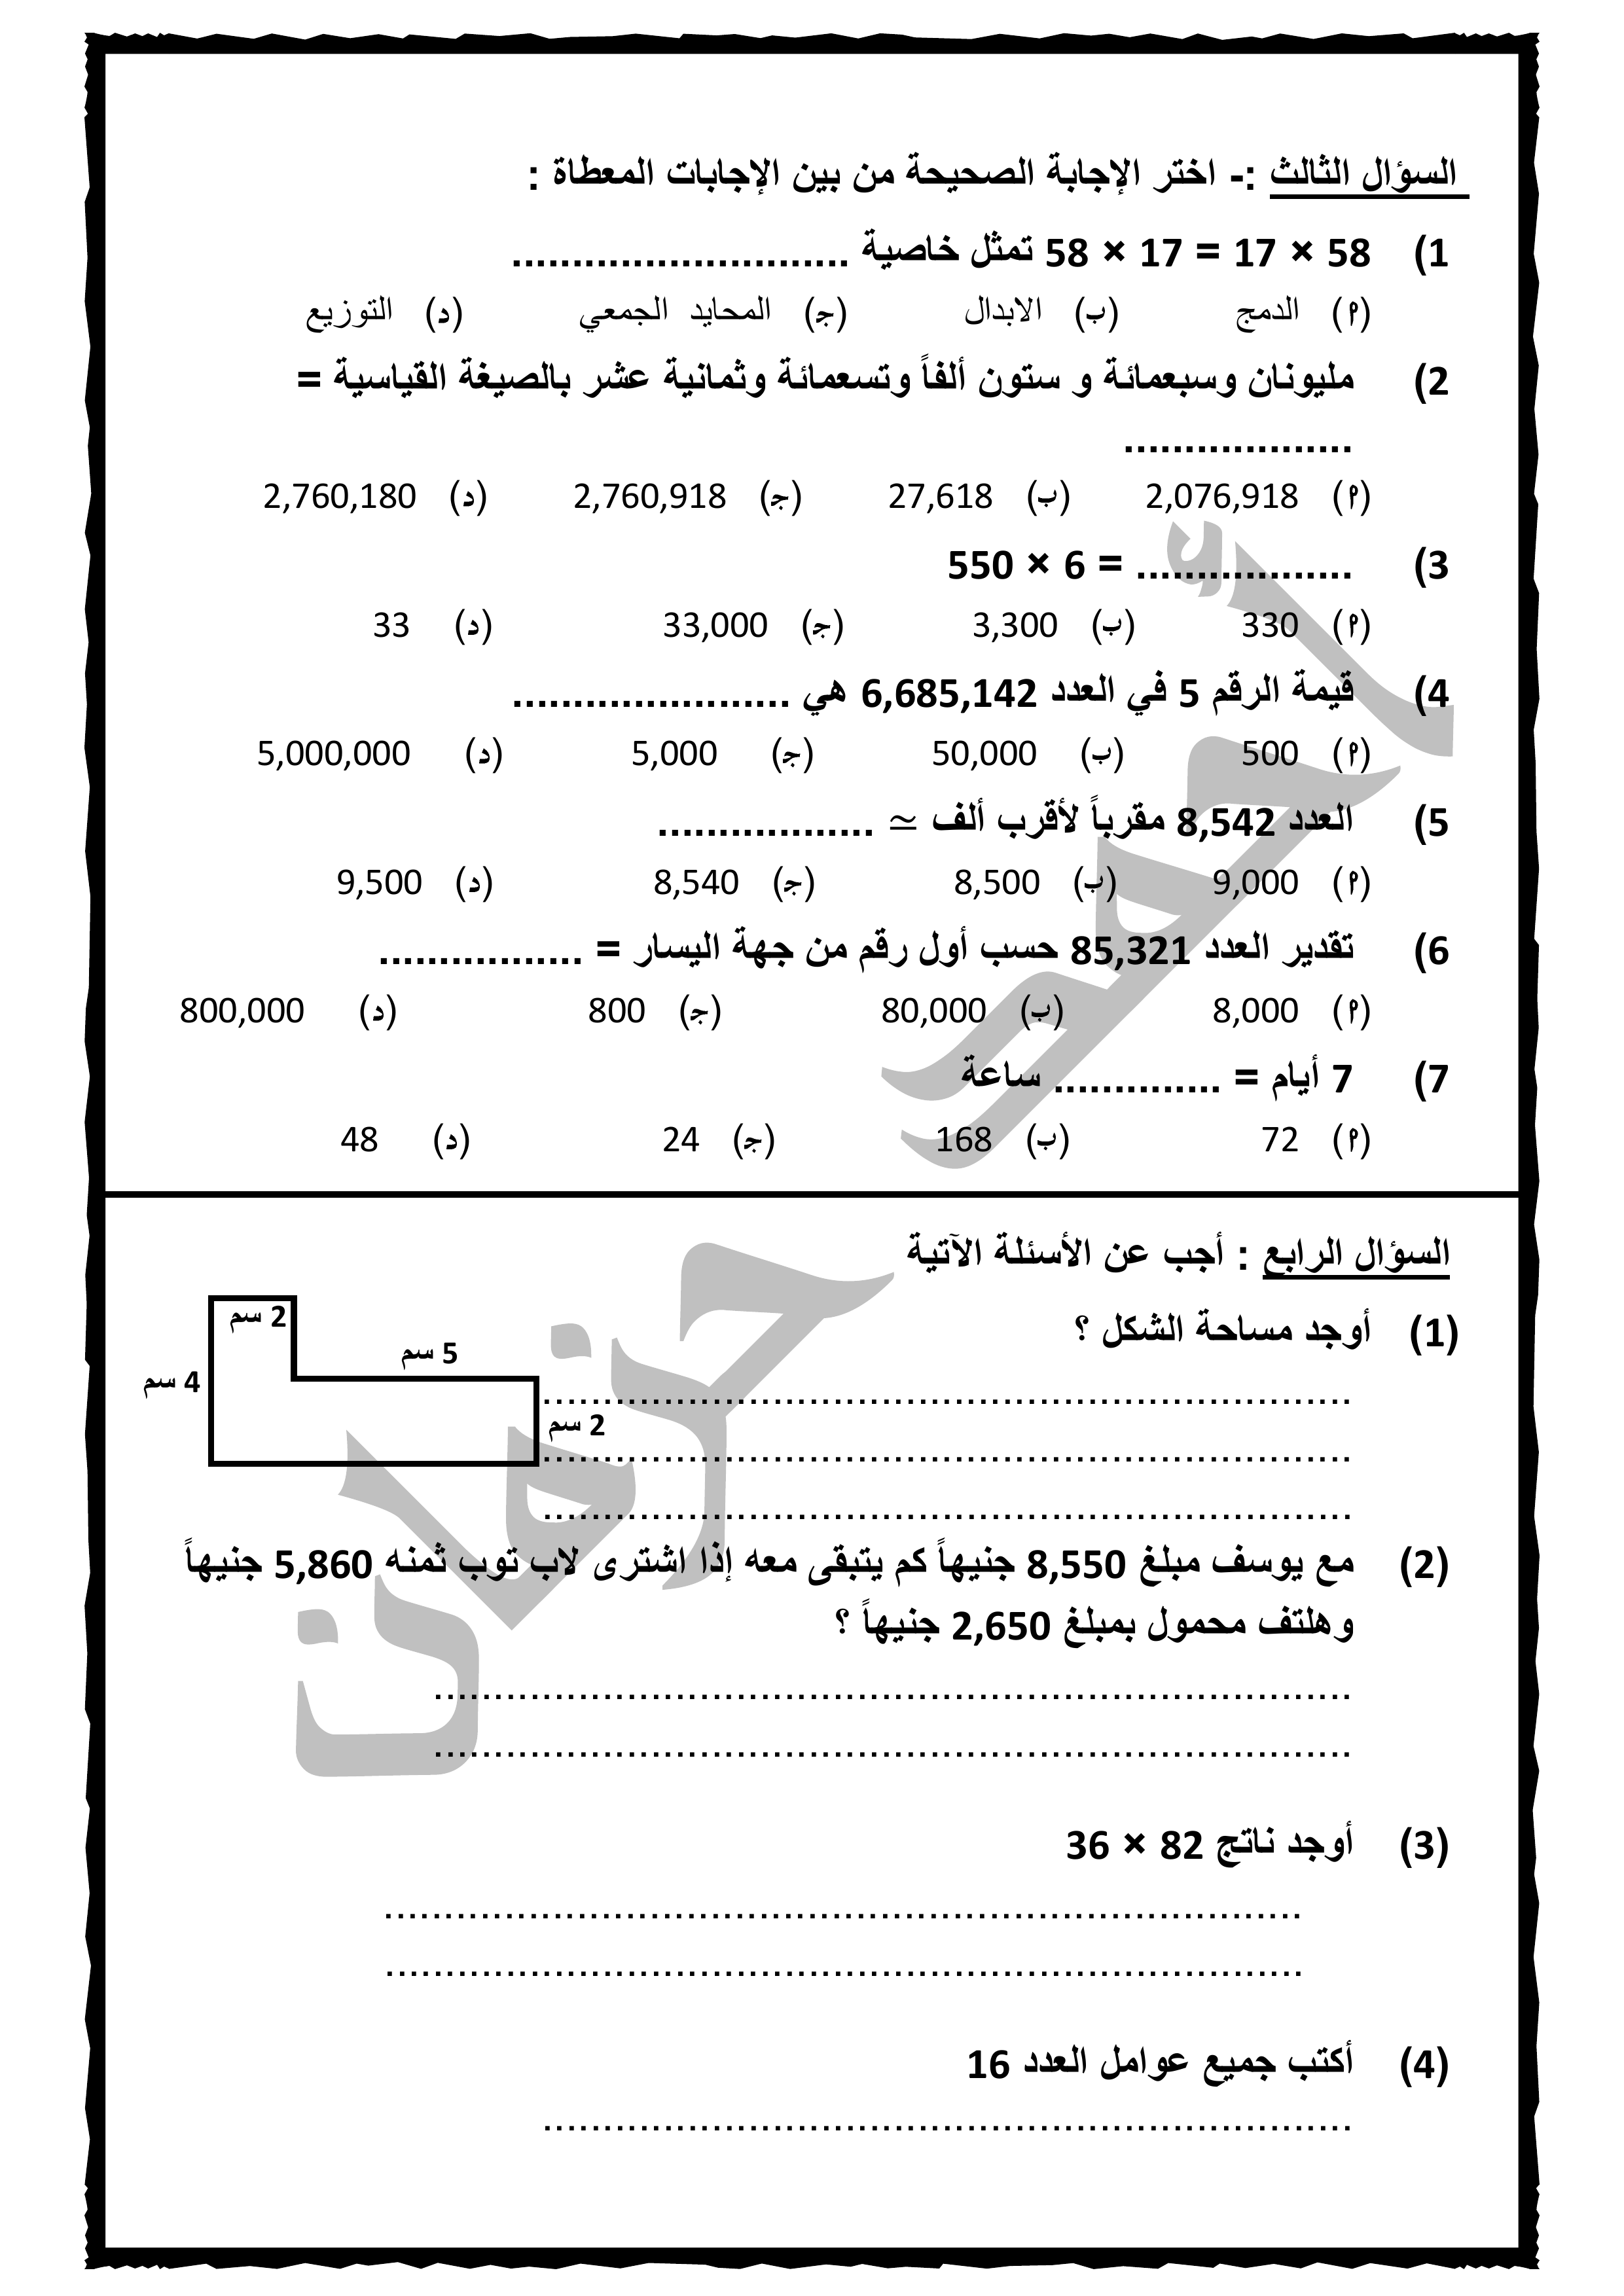 السؤال الثالث :- اختر الإجابة الصحيحة من بين الإجابات المعطاة :
1) 58 × 17 = 17 × 58 تمثل خاصية ............................
(أ) الدمج (ب) الابدال (ج) المحايد الجمعي (د) التوزيع
2) مليونان وسبعمائة و ستون ألفاً وتسعمائة وثمانية عشر بالصيغة القياسية =
...................
(أ) 2,076,918 (ب) 27,618 (ج) 2,760,918 (د) 2,760,180
3) 550 × 6 = ..................
(أ) 330 (ب) 3,300 (ج) 33,000 (د) 33
4) قيمة الرقم 5 في العدد 6,685,142 هي .......................
(أ) 500 (ب) 50,000 (ج) 5,000 (د) 5,000,000
5) العدد 8,542 مقرباً لأقرب ألف ≃ ..................
(أ) 9,000 (ب) 8,500 (ج) 8,540 (د) 9,500
6) تقدير العدد 85,321 حسب أول رقم من جهة اليسار = .................
(أ) 8,000 (ب) 80,000 (ج) 800 (د) 800,000
7) 7 أيام = .............. ساعة
(أ) 72 (ب) 168 (ج) 24 (د) 48
السؤال الرابع : أجب عن الأسئلة الآتية
(1) أوجد مساحة الشكل ؟
2 سم
5 سم
4 سم
2 سم
...................................................................
...................................................................
...................................................................
(2) مع يوسف مبلغ 8,550 جنيهاً كم يتبقى معه إذا اشترى لاب توب ثمنه 5,860 جنيهاً
وهلتف محمول بمبلغ 2,650 جنيهاً ؟
............................................................................
............................................................................
(3) أوجد ناتج 82 × 36
............................................................................
............................................................................
(4) أكتب جميع عوامل العدد 16
...................................................................
أحمد حزمان